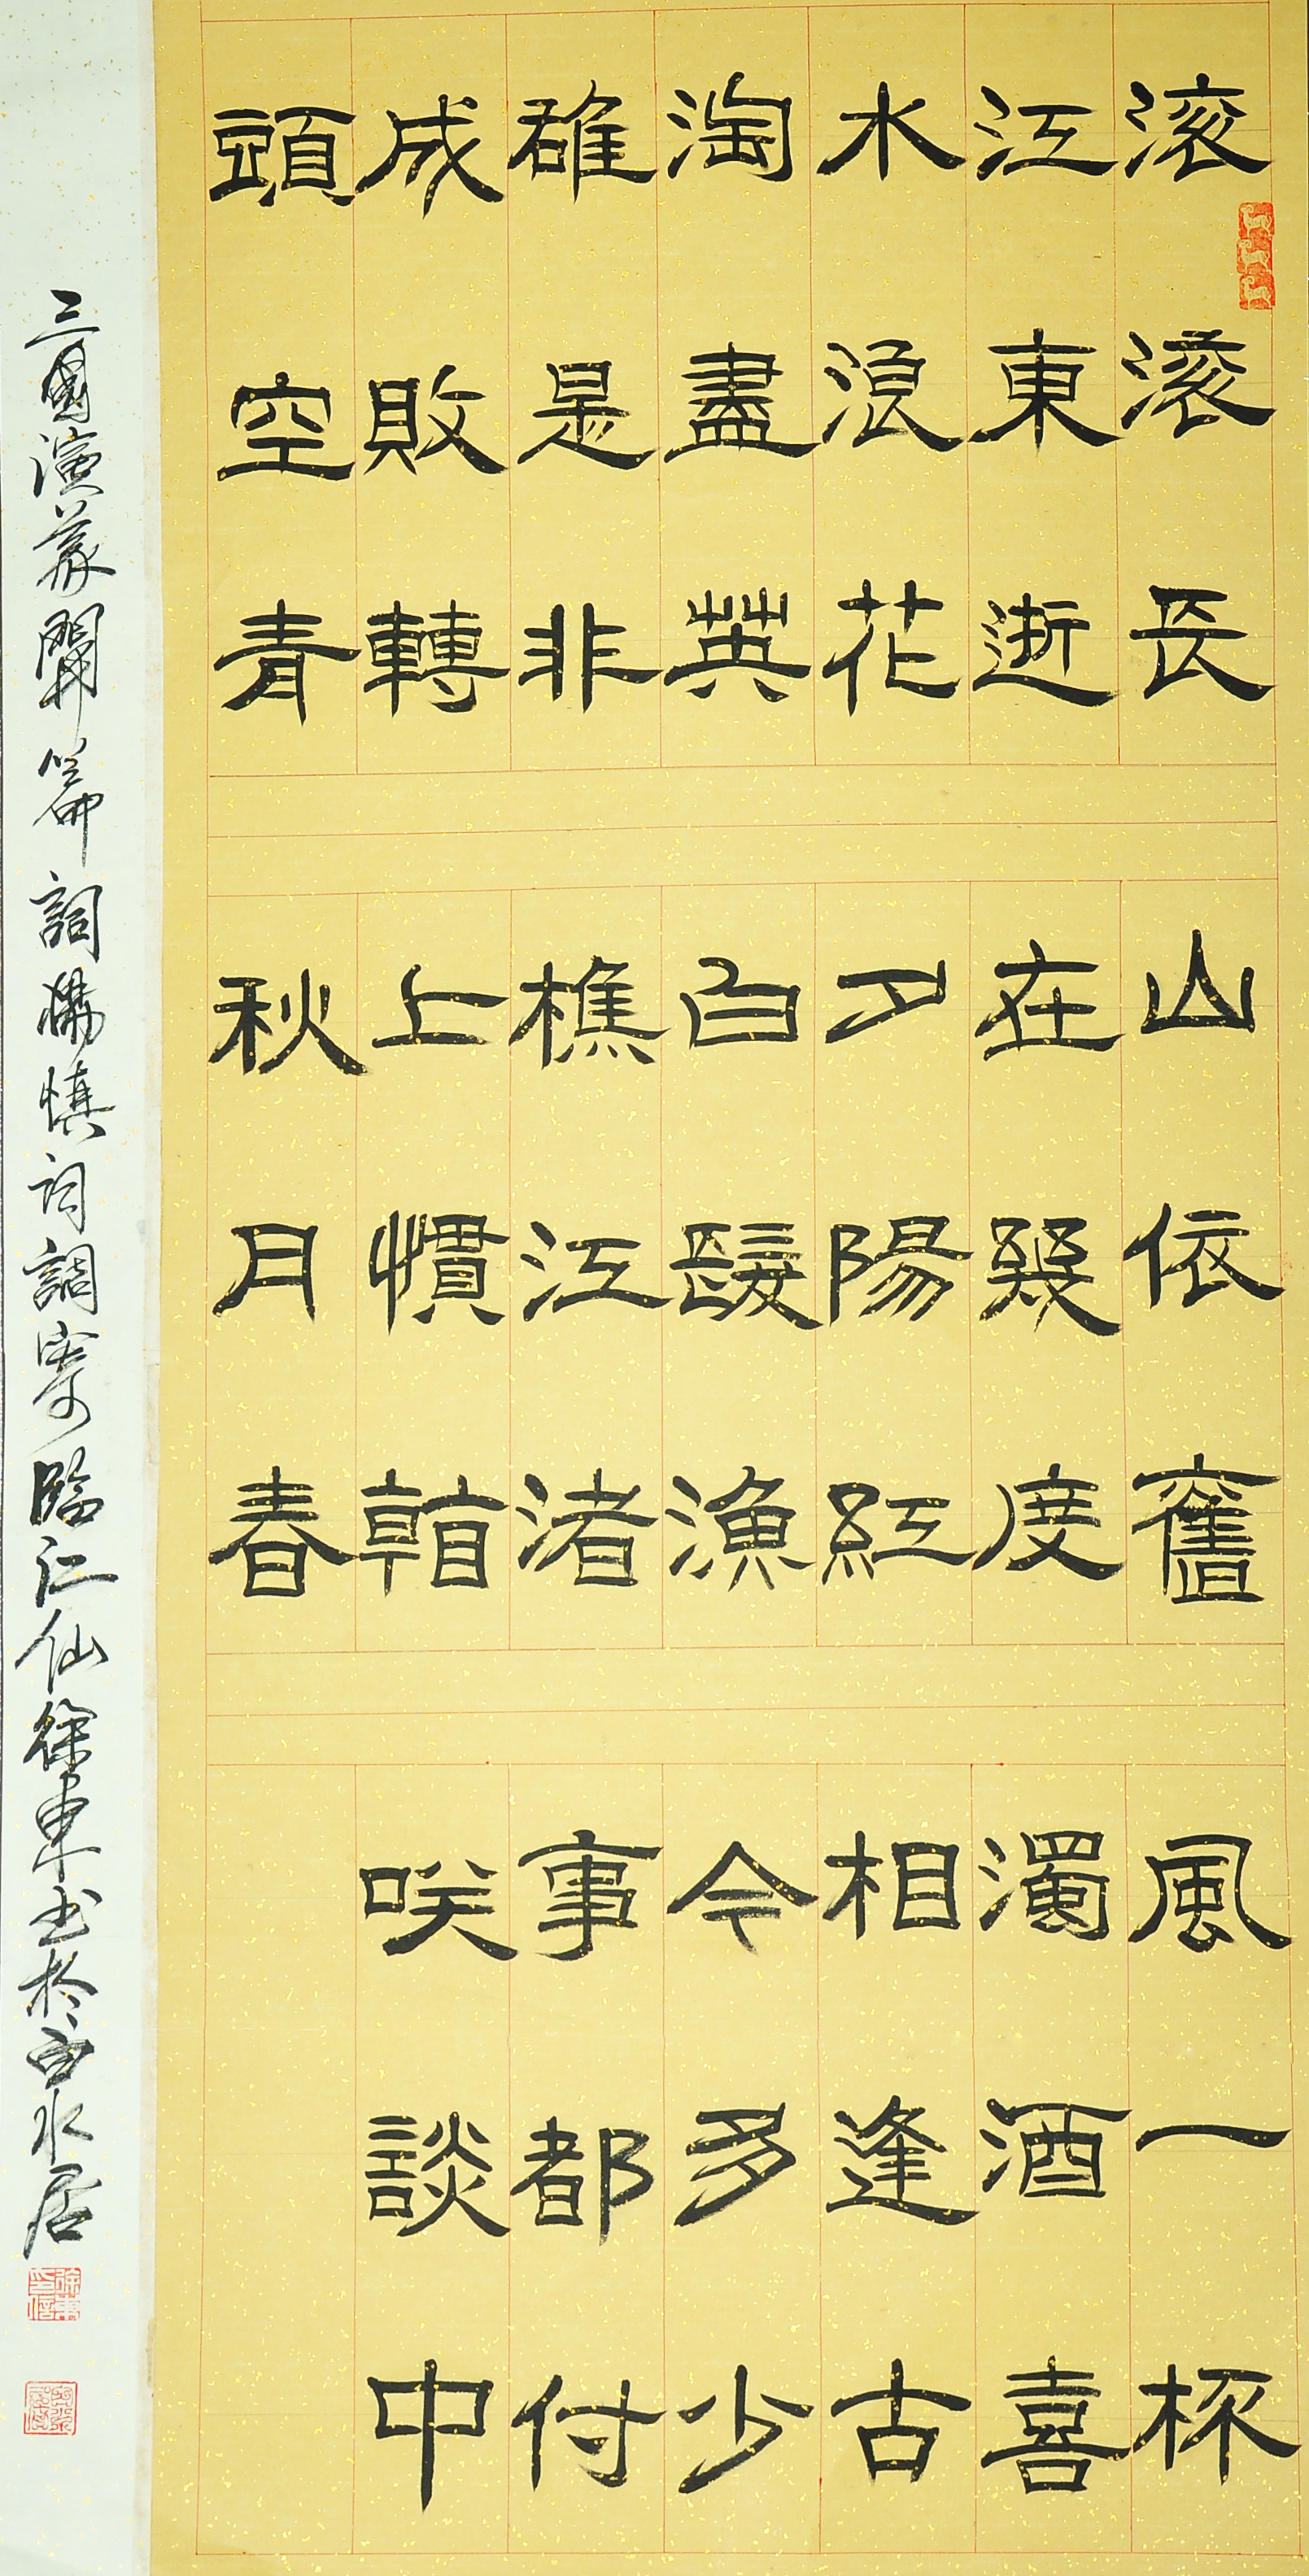 滚滚長
江東逝
水浪花
淘盡英
雄是非
成敗轉
頭空青
山依舊
在幾度
夕陽紅
白髮漁
樵江渚
上慣看
秋月春
風一杯
濁酒喜
相逢古
今多少
事都付
咲談中
三國演義開篇詞楊慎詞調寄臨江仙徐東书於白水居